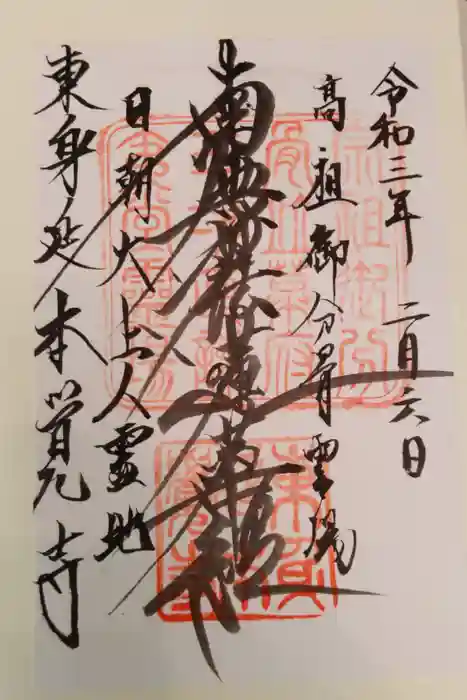 令和三年 二月六日
高祖御分骨霊場
南無妙法蓮華経
日朝大上人霊地
東身延本覚寺